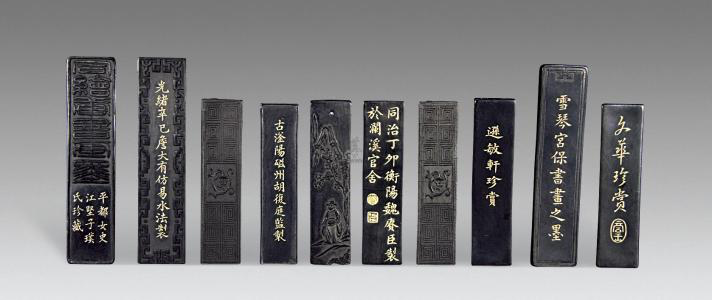 平都女史
江子璞
氏珍藏
光緒辛巳詹大有仿易水法製
古滏陽磁州胡復庭監製
同治丁卯衡陽魏賡臣製
於瀾溪官舍
遜敏軒珍賞
雪琴宮保書畫之墨
華珍賞